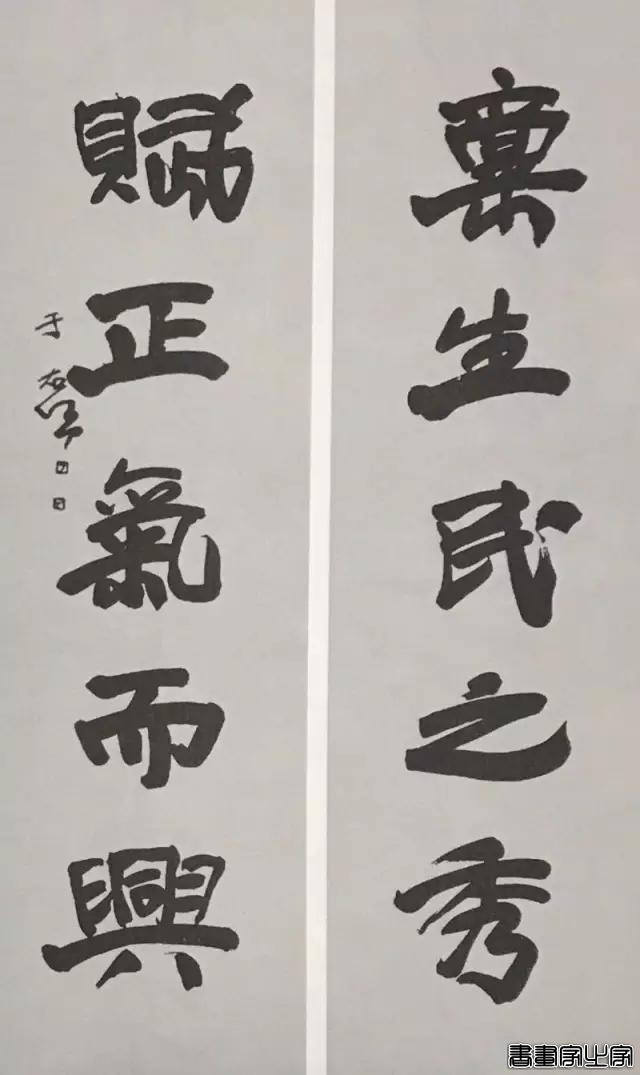 稟生民之秀
賦正氣而興
于右任
書畫字中字